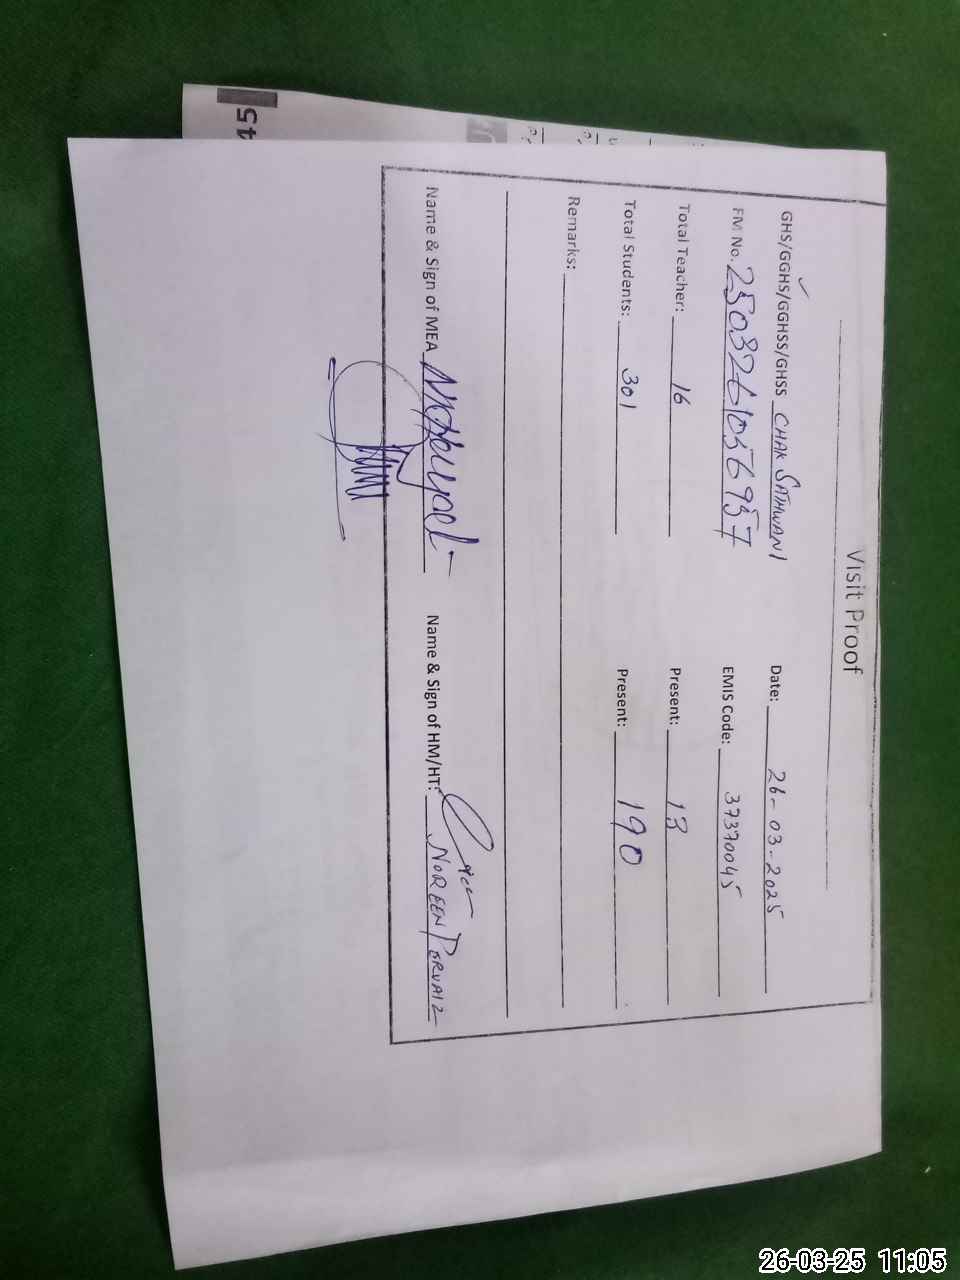 Visit Proof
GHS/GGHS/GGHSS/GHSS CHAK SATHWANI Date: 26-03-2025
FM No. 2503261056957 EMIS Code: 37370045
Total Teacher: 16 Present: 13
Total Students: 301 Present: 190
Remarks:
Name & Sign of MEA Name & Sign of HM/HT: NOREEN PERVAIZ
45
26-03-25 11:05